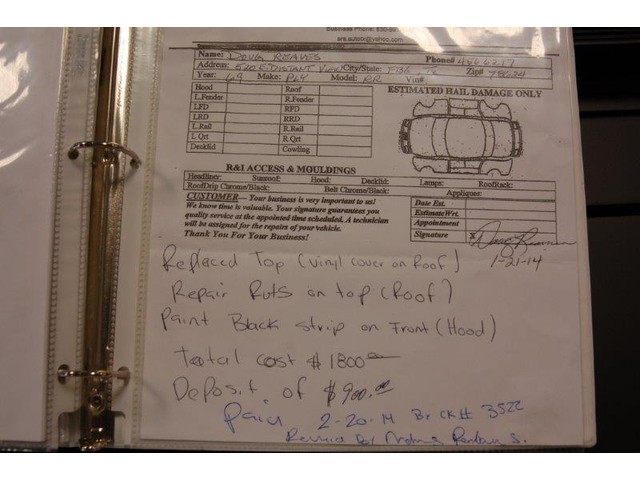 Business Phone: 830-
ars.autotx@yahoo.com
Name: DOUG REAVES Phone# 4666217
Address: City/State: FBG TX Zip# 78624
Year: 69 Make: PLY Model: RR Vin#
Hood Roof ESTIMATED HAIL DAMAGE ONLY
L.Feuder R.Feuder
LFD RFD
LRD RRD
L.Rail R.Rail
L Qrt R Qrt
Decklid Cowling
R&I ACCESS & MOULDINGS
Headliner: Sunroof: Hood: Decklid: Lamps: RoofRack:
RoofDrip Chrome/Black: Belt Chrome/Black: Appliques:
CUSTOMER— Your business is very important to us!
We know time is valuable. Your signature guarantees you
quality service at the appointed time scheduled. A technician
will be assigned for the repairs of your vehicle.
Thank You For Your Business!
Date Est.
EstimateWrt.
Appointment
Signature X
1-21-14
Replaced Top (vinyl cover on Roof)
Repair Ruts on top (Roof)
Paint Black strip on Front (Hood)
Total cost $1800
Deposit of $900.00
Paid 2-20-14 By CK# 3522